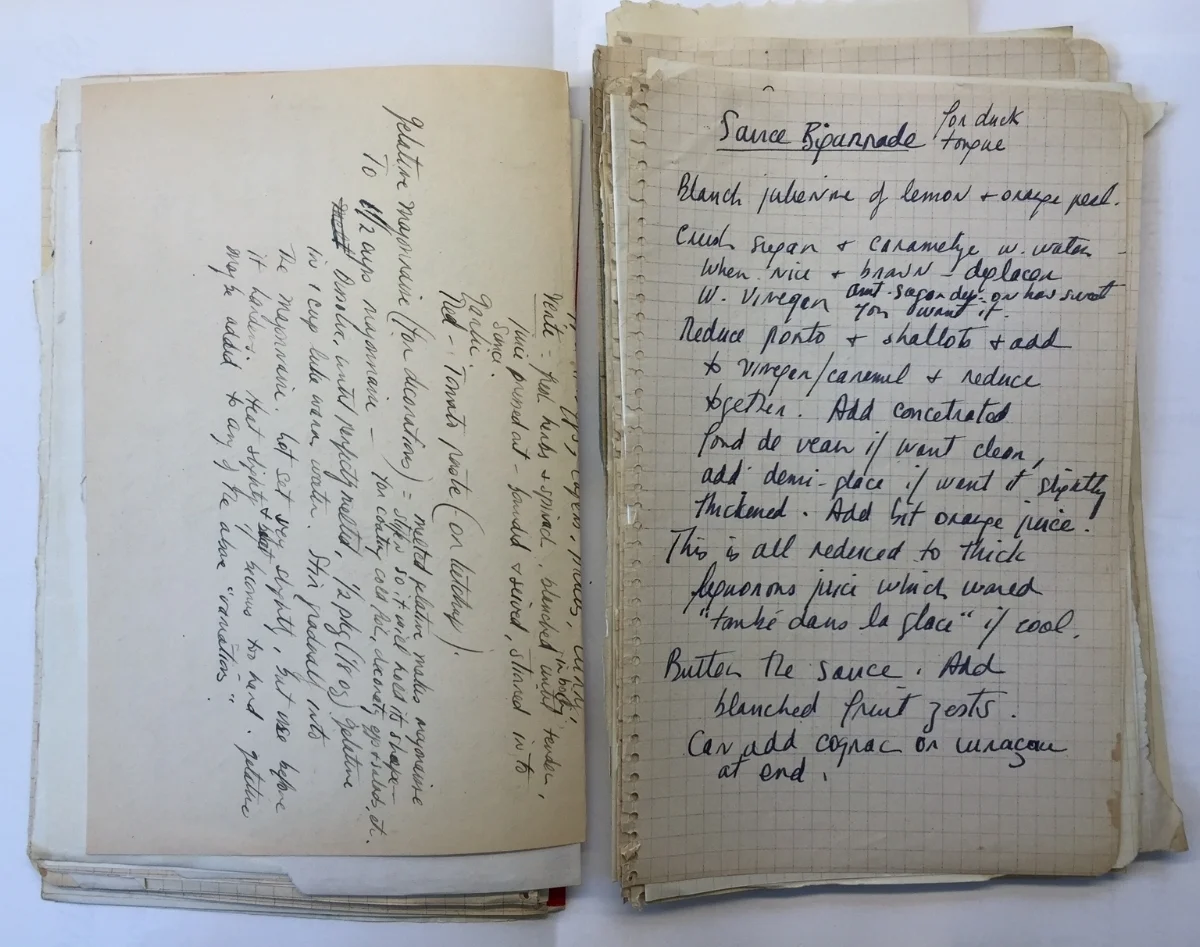 capers, pickles, curry,
Verte - fresh herbs + spinach, blanched until tender,
juice pressed out - pounded & sieved, stirred into
Sauce.
Garlic.
Red - Tomato paste (or ketchup).
Gelatine Mayonnaise (for decorations) = melted gelatine makes mayonnaise
stiffen so it will hold its shape -
To 1 1/2 cups mayonnaise - for coating cold fish, decorating egg salads, etc.
Dissolve, until perfectly melted, 1/2 pkg (1/8 oz) gelatine
in 1 cup luke warm water. Stir gradually into
The mayonnaise. Let set very slightly, but use before
it hardens. Heat slightly if becomes too hard. Gelatine
may be added to any of the above "variations"
Sauce Bigarrade for duck
tongue
Blanch julienne of lemon + orange peel.
Crush sugar + caramelize w. water
When nice + brown - deglacer
w. vinegar amt. sugar dep. on how sweet
you want it.
Reduce porto + shallots + add
to vinegar/caramel + reduce
together. Add concetrated
fond de veau if want clear,
add demi-glace if want it slightly
thickened. Add bit orange juice.
This is all reduced to thick
liquorous juice which
"tombé dans la glace" if cool.
Butter the sauce. Add
blanched fruit zests.
Can add cognac or curaçau
at end.